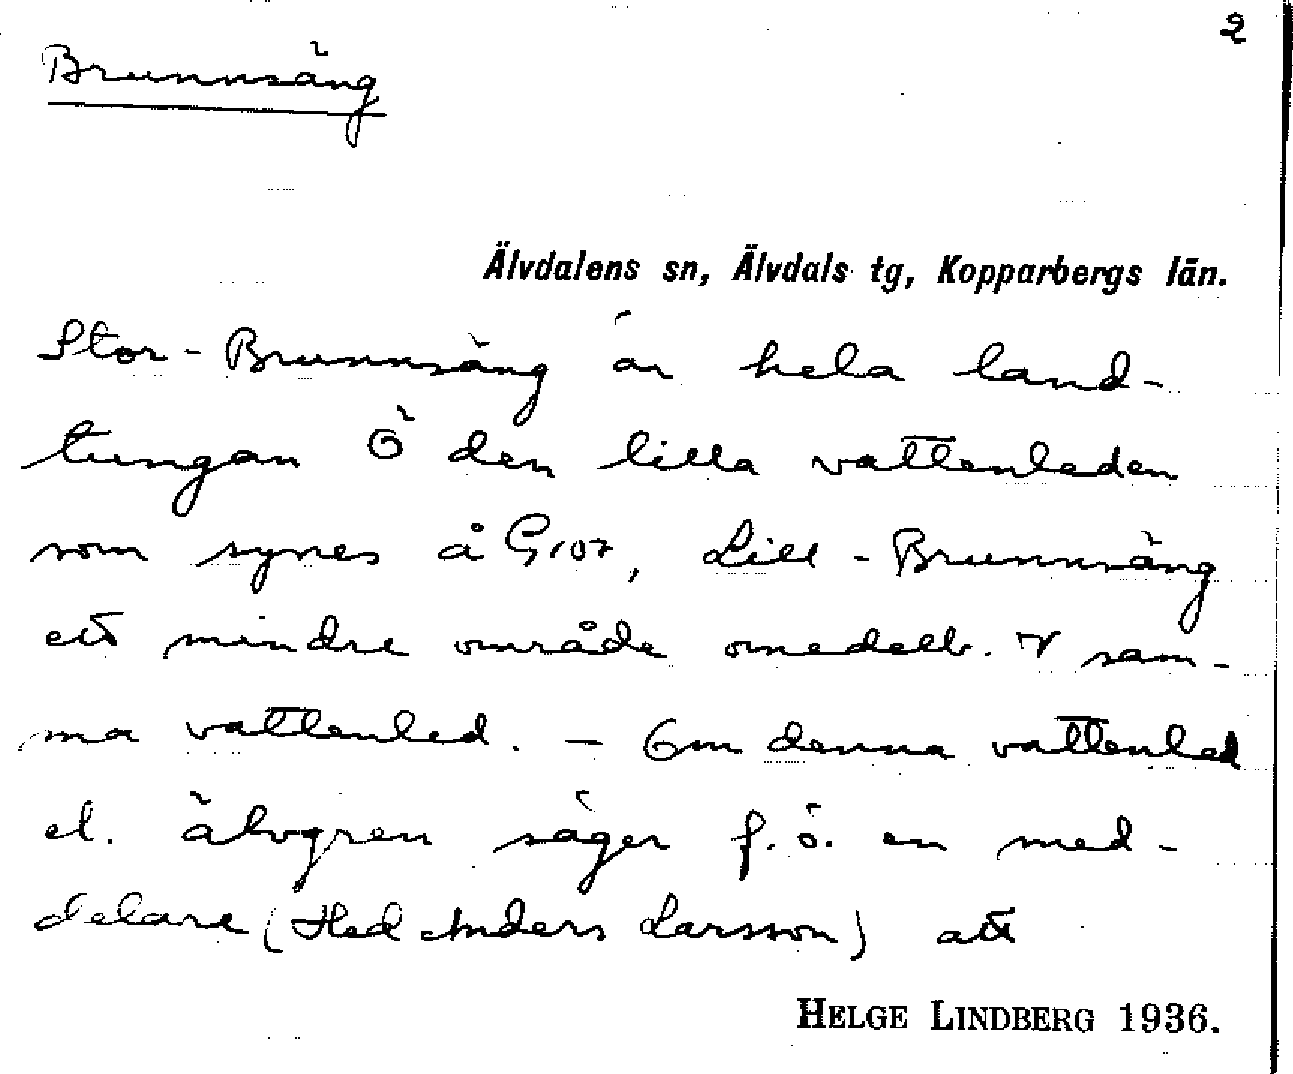 2
Brunnsäng
Älvdalens sn, Älvdals tg, Kopparbergs län.
Stor-Brunnsäng är hela land-
tungan Ö den lilla vattenleden
som synes å G107, Lill-Brunnsäng
ett mindre område omedelb. V sam-
ma vattenled. - Om denna vattenled
el. älvgren säger f.ö. en med-
delare (Hed Anders Larsson) att
HELGE LINDBERG 1936.